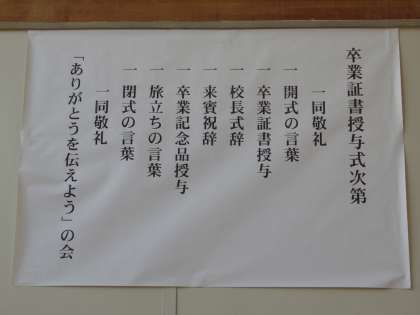 卒業証書授与式次第
一同敬礼
一 開式の言葉
一 卒業証書授与
一 校長式辞
一 来賓祝辞
一 卒業記念品授与
一 旅立ちの言葉
一 閉式の言葉
一同敬礼
「ありがとうを伝えよう」の会